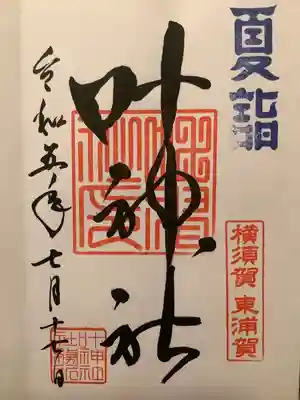 夏詣
横須賀 東浦賀
叶神社
令和五年 七月十七日